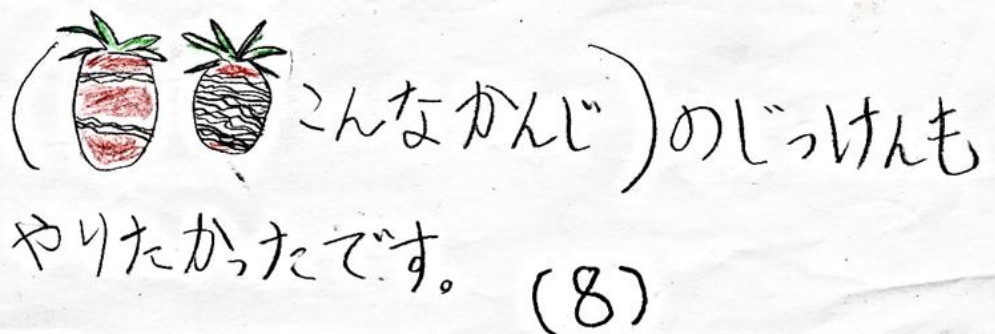 (こんなかんじ)のじっけんも
やりたかったです。
(8)